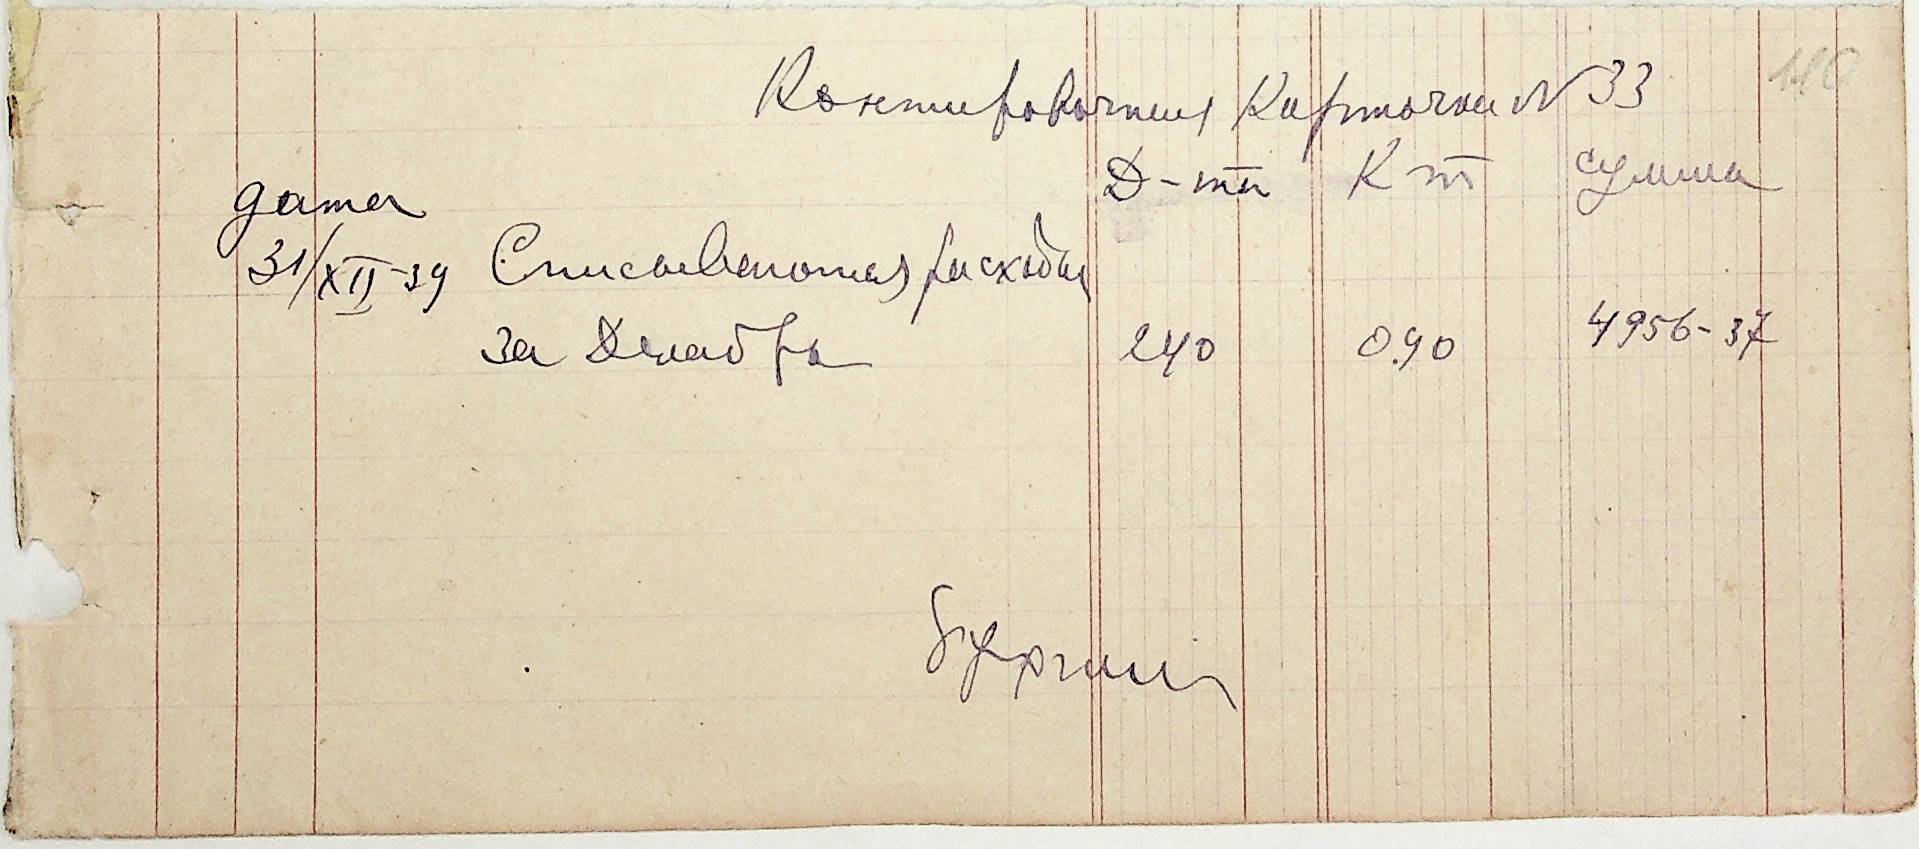 110
Контировочная Карточка N 33
дата Д-т К-т сумма
31/XII-39 Списываются расходы
за Декабрь 240 090 4956-37